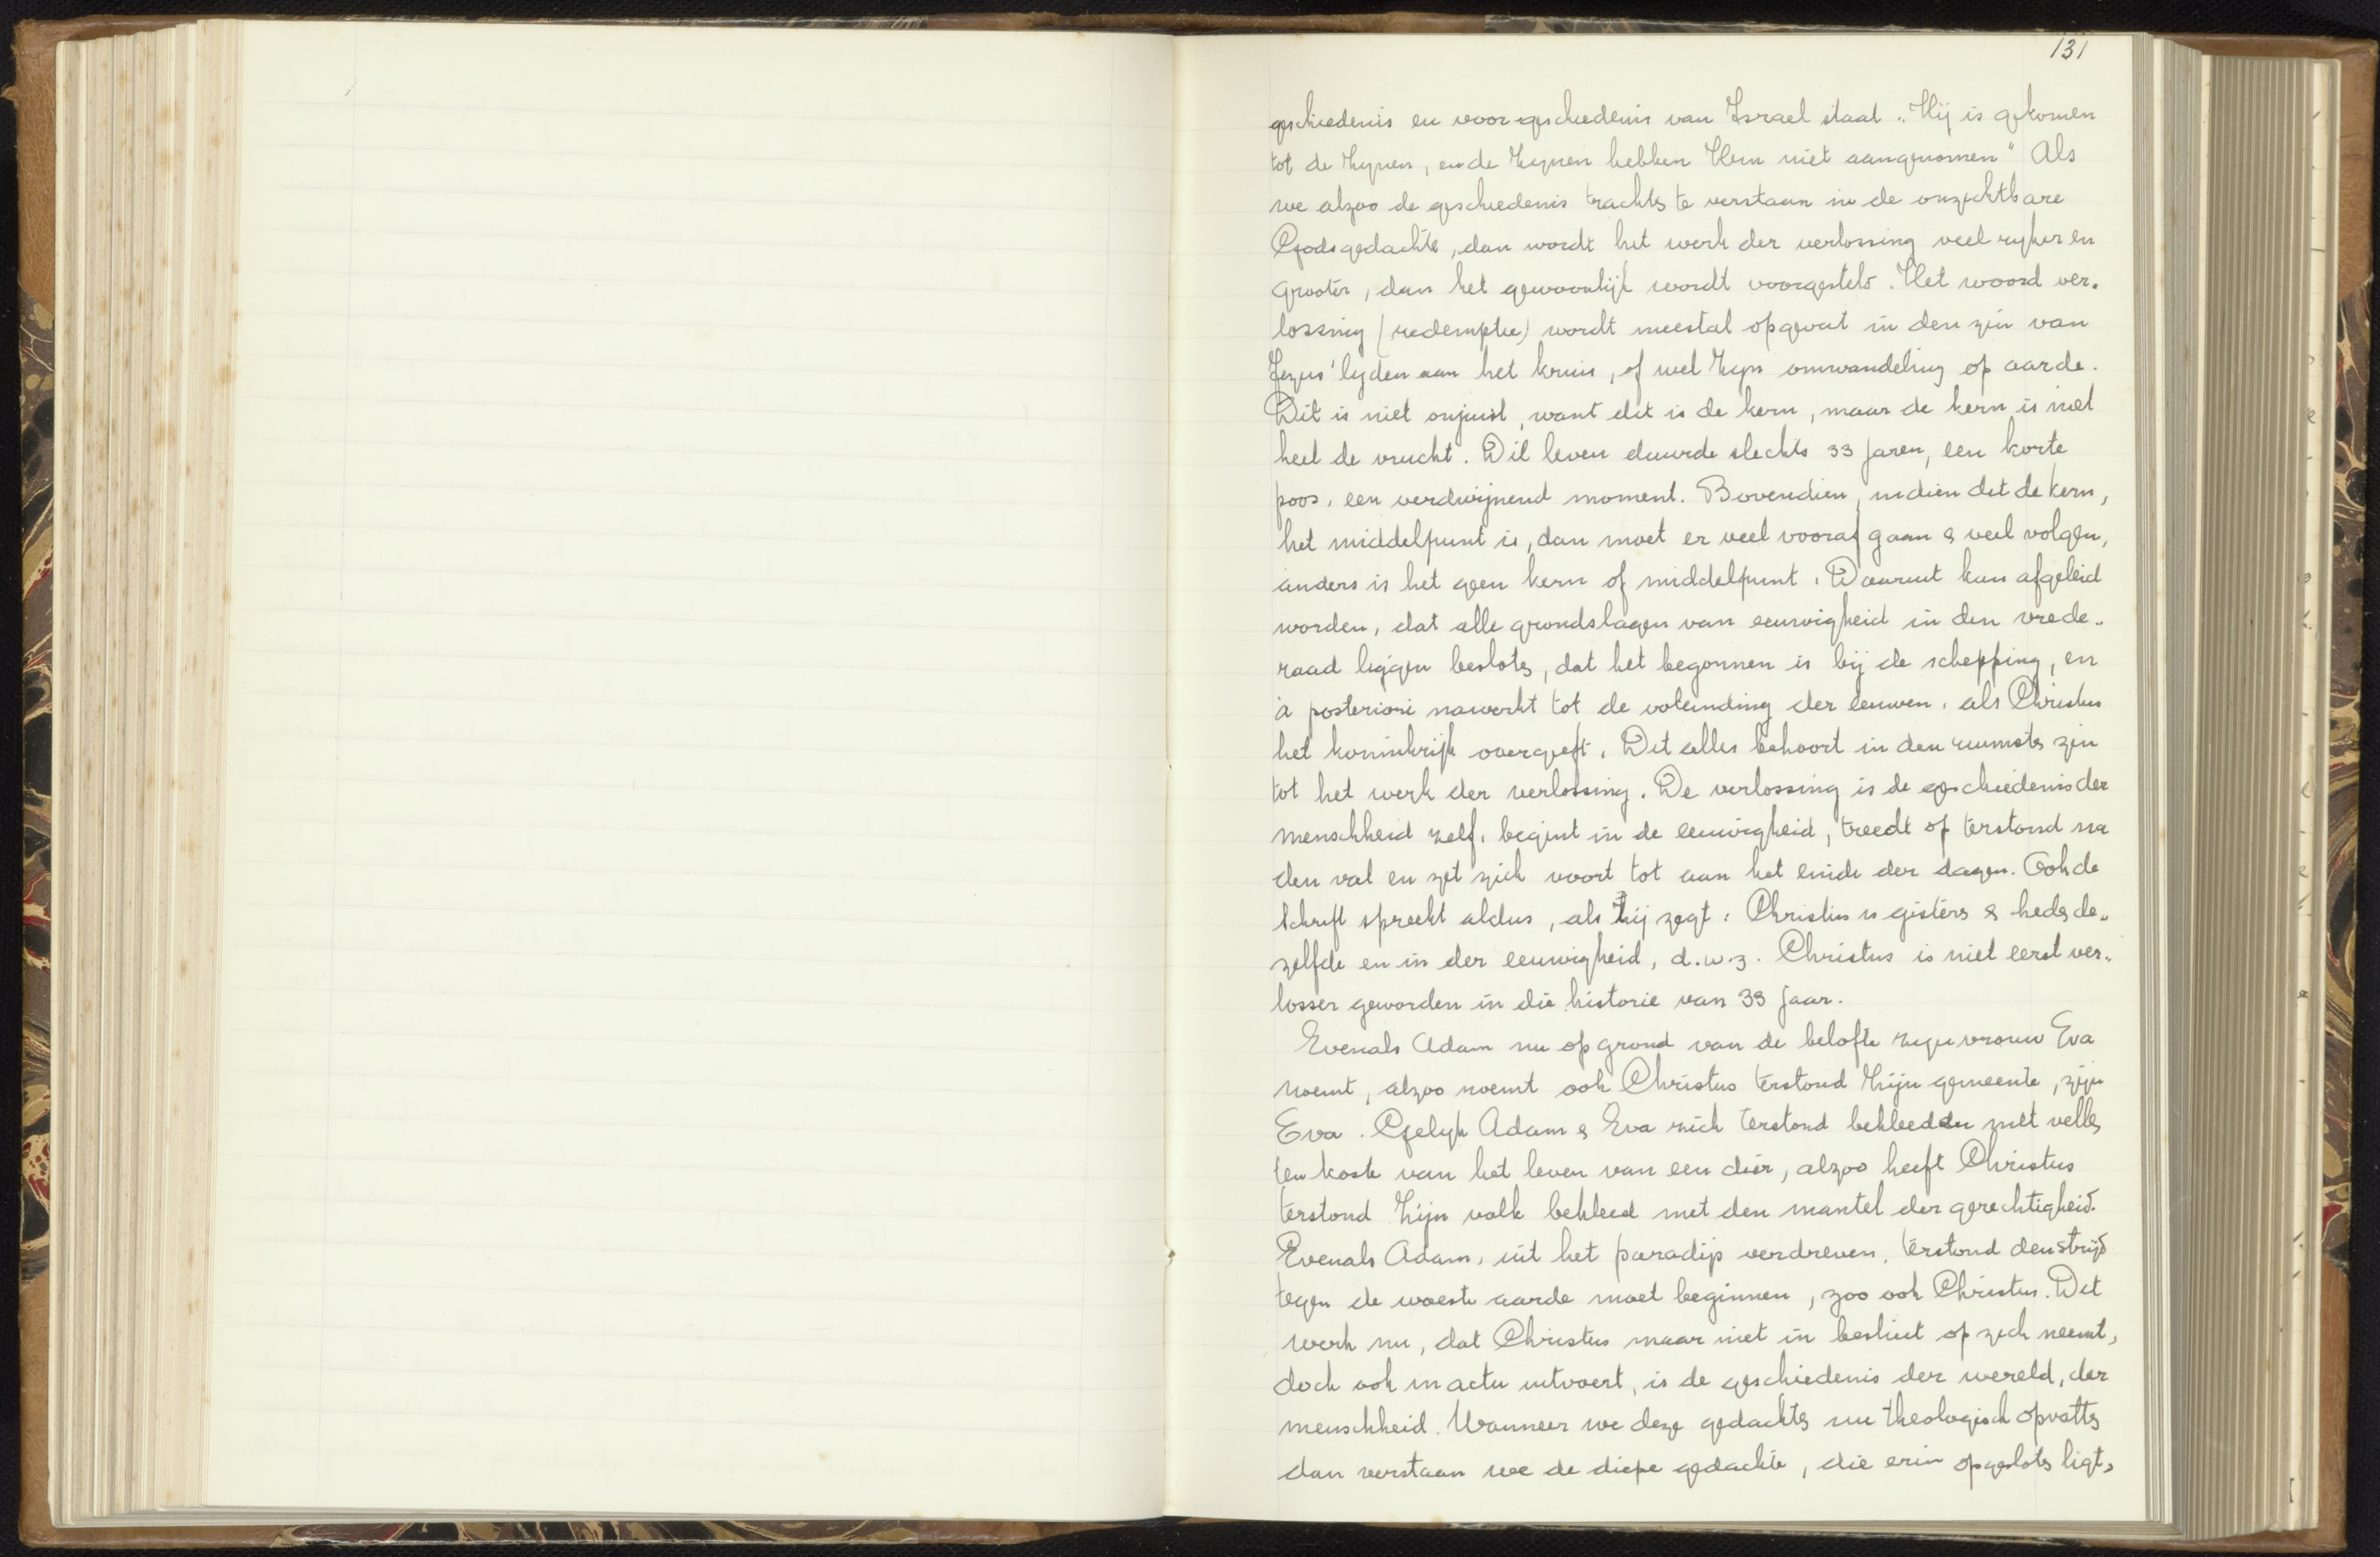 131
geschiedenis en voorgeschiedenis van Israel staat „Hij is gekomen
tot de Zynen, en de Zynen hebben Hem niet aangenomen" Als
we alzoo de geschiedenis trachten te verstaan in de onzichtbare
Godsgedachte, dan wordt het werk der verlossing veel ryker en
grooter, dan het gewoonlijk wordt voorgesteld. Het woord ver-
lossing (redemptie) wordt meestal opgevat in den zin van
Jezus' lyden aan het kruis, of wel Zyn omwandeling op aarde.
Dit is niet onjuist, want dit is de kern, maar de kern is niet
heel de vrucht. Dit leven duurde slechts 33 jaren, een korte
poos, een verdwijnend moment. Bovendien, indien dit de kern,
het middelpunt is, dan moet er veel vooraf gaan & veel volgen,
anders is het geen kern of middelpunt. Daaruit kan afgeleid
worden, dat alle grondslagen van eeuwigheid in den vrede-
raad liggen besloten, dat het begonnen is bij de schepping, en
à posteriori nawerkt tot de voleinding der eeuwen, als Christus
het koninkrijk overgeeft. Dit alles behoort in den ruimsten zin
tot het werk der verlossing. De verlossing is de geschiedenis der
menschheid zelf, begint in de eeuwigheid, treedt op terstond na
den val en zet zich voort tot aan het einde der dagen. Ook de
Schrift spreekt aldus, als zij zegt: Christus is gisteren & heden de-
zelfde en in der eeuwigheid, d.w.z. Christus is niet eerst ver-
losser geworden in die historie van 33 jaar.
Evenals Adam nu op grond van de belofte zyn vrouw Eva
noemt, alzoo noemt ook Christus terstond Zijn gemeente, zijn
Eva. Gelyk Adam & Eva zich terstond bekleedden met vellen
ten koste van het leven van een dier, alzoo heeft Christus
terstond Zijn volk bekleed met den mantel der gerechtigheid.
Evenals Adam, uit het paradijs verdreven, terstond den strijd
tegen de woeste aarde moet beginnen, zoo ook Christus. Dit
werk nu, dat Christus maar niet in besluit op zich neemt,
doch ook in actu uitvoert, is de geschiedenis der wereld, der
menschheid. Wanneer we deze gedachten nu theologisch opvatten
dan verstaan we de diepe gedachte, die erin opgesloten ligt,